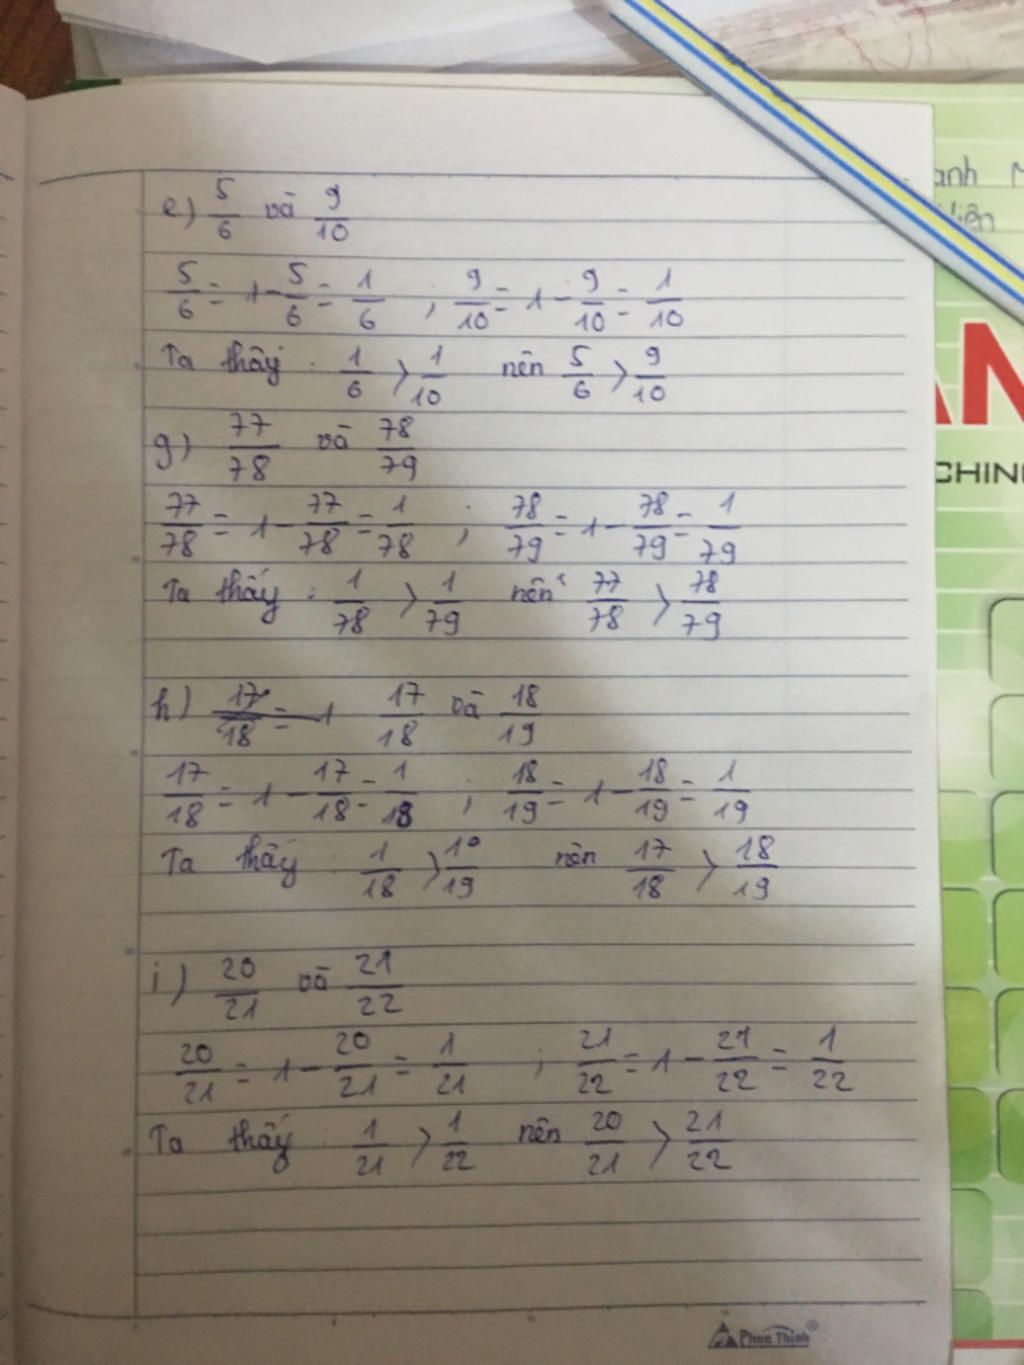 e) 5/6 và 9/10
5/6 = 1 - 5/6 = 1/6 ; 9/10 = 1 - 9/10 = 1/10
Ta thấy : 1/6 > 1/10 nên 5/6 > 9/10
g) 77/78 và 78/79
77/78 = 1 - 77/78 = 1/78 ; 78/79 = 1 - 78/79 = 1/79
Ta thấy : 1/78 > 1/79 nên 77/78 > 78/79
h) 17/18 = 1 17/18 và 18/19
17/18 = 1 - 17/18 = 1/18 ; 18/19 = 1 - 18/19 = 1/19
Ta thấy 1/18 > 1/19 nên 17/18 > 18/19
i) 20/21 và 21/22
20/21 = 1 - 20/21 = 1/21 ; 21/22 = 1 - 21/22 = 1/22
Ta thấy : 1/21 > 1/22 nên 20/21 > 21/22
Phuc Thinh
anh
AN
CHIN